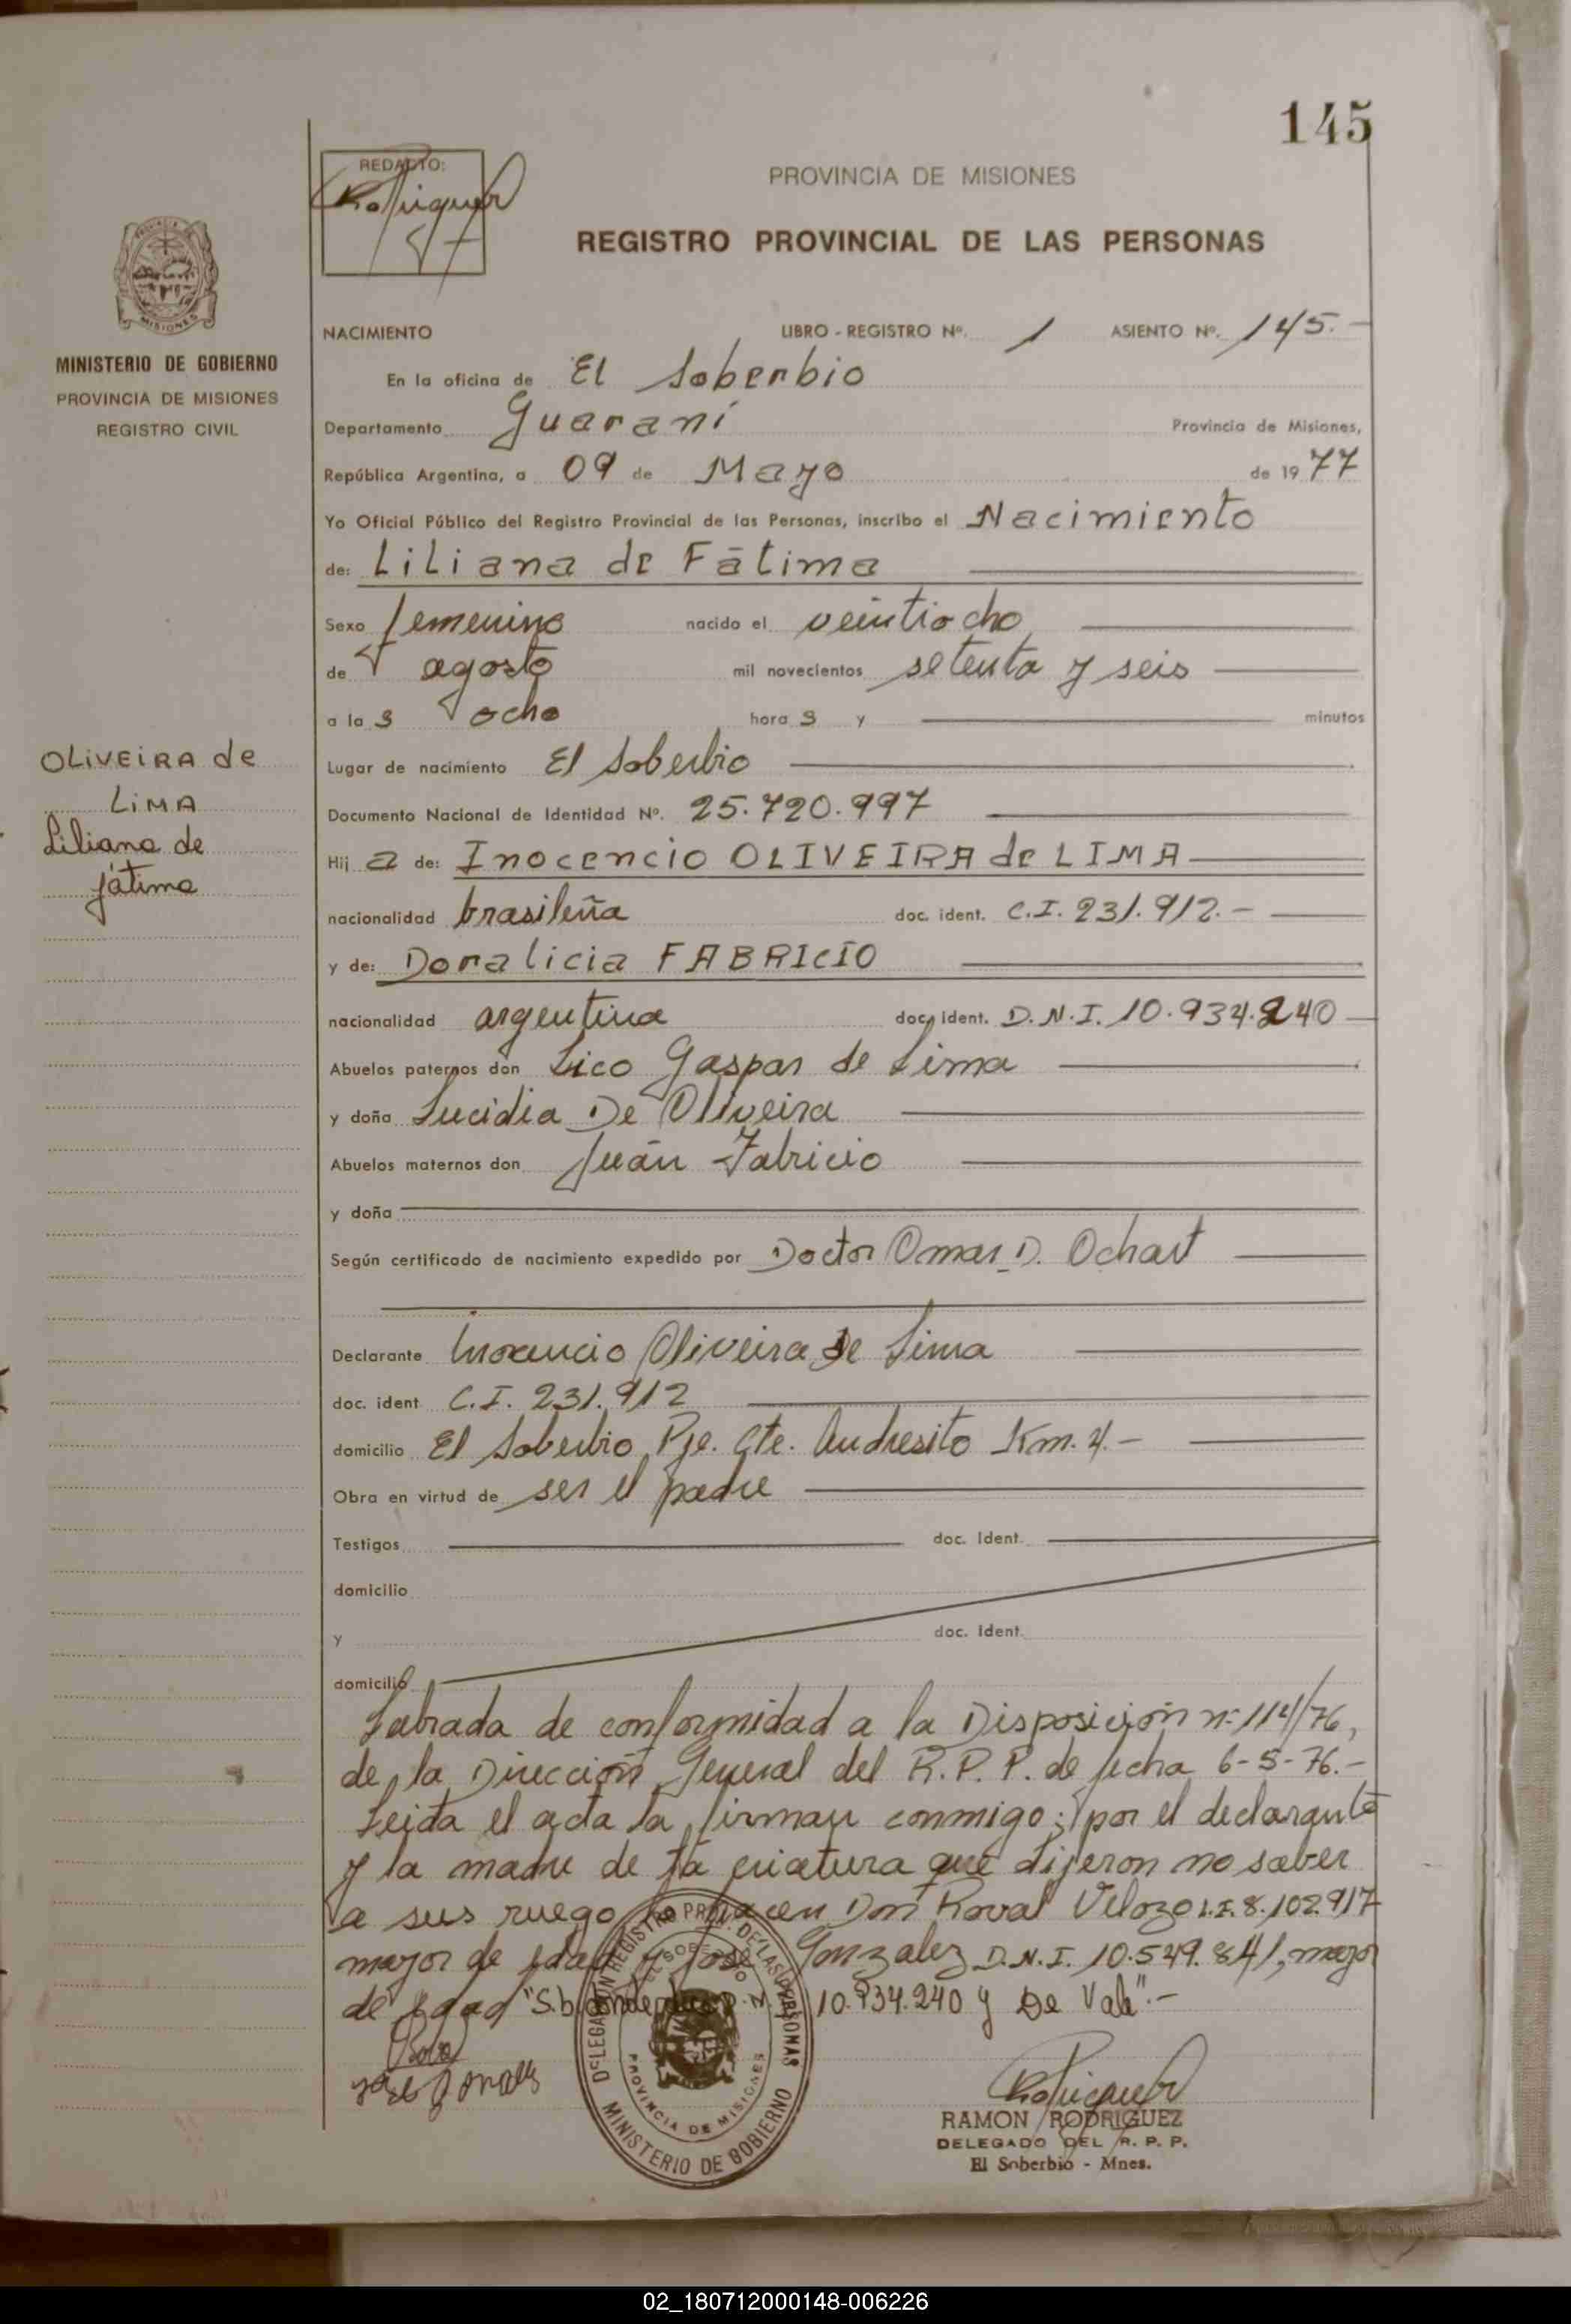 145
REDACTO:
PROVINCIA DE MISIONES
REGISTRO PROVINCIAL DE LAS PERSONAS
MISIONES
MINISTERIO DE GOBIERNO
PROVINCIA DE MISIONES
REGISTRO CIVIL
NACIMIENTO LIBRO - REGISTRO Nº. 1 ASIENTO Nº. 145.-
En la oficina de El Soberbio
Departamento Guaraní Provincia de Misiones,
República Argentina, a 09 de Mayo de 1977
Yo Oficial Público del Registro Provincial de las Personas, inscribo el Nacimiento
de: Liliana de Fátima
Sexo femenino nacido el veintiocho
de agosto mil novecientos setenta y seis
a las ocho horas y minutos
OLIVEIRA de
LIMA
Liliana de
fátima
Lugar de nacimiento El Soberbio
Documento Nacional de Identidad Nº. 25.720.997
Hija de: Inocencio OLIVEIRA de LIMA
nacionalidad brasileña doc. ident. C.I. 231.912.-
y de: Doralicia FABRICIO
nacionalidad argentina doc. ident. D.N.I. 10.934.240
Abuelos paternos don Lico Gaspar de Lima
y doña Lucidia De Oliveira
Abuelos maternos don Juán Fabricio
y doña
Según certificado de nacimiento expedido por Doctor Omar D. Ochart
Declarante Inocencio Oliveira De Lima
doc. ident C.I. 231.912
domicilio El Soberbio, Pje. Cte. Andresito Km. 4.-
Obra en virtud de ser el padre
Testigos doc. Ident.
domicilio
y doc. Ident.
domicilio
Labrada de conformidad a la Disposición nº 114/76,
de la Dirección General del R.P.P. de fecha 6-5-76.-
Leida el acta la firman conmigo; por el declarante
y la madre de la criatura que dijeron no saber
a sus ruego lo hacen Don Roval Velozo L.E. 8.102.917
mayor de edad y José Gonzalez D.N.I. 10.549.841, mayor
de edad "S.b. 10.934.240 y De Vale".-
José Gonzalez
DELEGACION REGISTRO PROV. DE LAS PERSONAS
EL SOBERBIO
PROVINCIA DE MISIONES
MINISTERIO DE GOBIERNO
RAMON RODRIGUEZ
DELEGADO DEL R. P. P.
El Soberbio - Mnes.
02_180712000148-006226